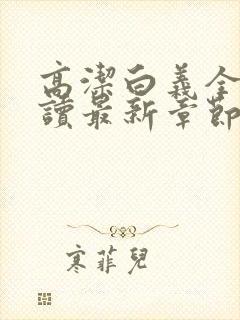 高潔白義全
讀最新章節
寒菲兒